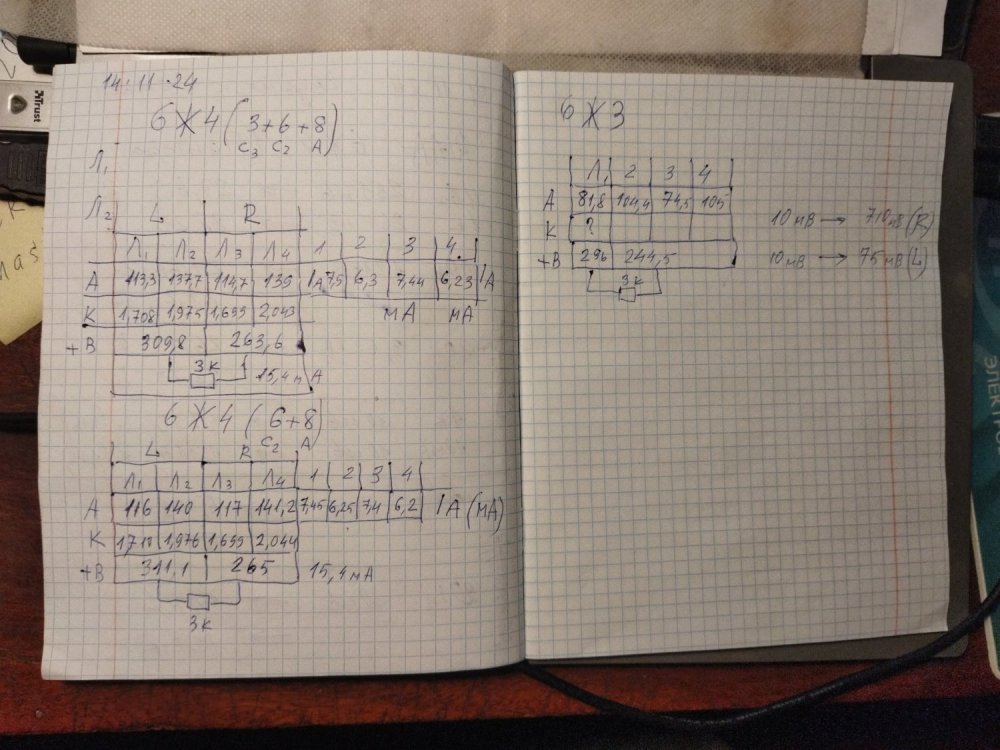 14.11.24
6Ж4 (3+6+8)
C3 C2 A
Л1
Л2 L R
Л1 Л2 Л3 Л4 1 2 3 4
A 113,3 137,7 114,7 139 IA 7,5 6,3 7,44 6,23 IA
K 1,708 1,975 1,699 2,043 мА мА
+B 309,8 263,6
3к 15,4 мА
6Ж4 (6+8)
C2 A
L R
Л1 Л2 Л3 Л4 1 2 3 4
A 116 140 117 141,2 7,45 6,25 7,4 6,2 IA (мА)
K 1,976 1,699 2,044
+B 311,1 265 15,4 мА
3к
6Ж3
Л1 2 3 4
A 81,8 104,4 74,5 105
K ?
+B 296 244,5
3к
10 мВ → 710 мВ (R)
10 мВ → 75 мВ (L)
Trust
ЭЛЕКТРО